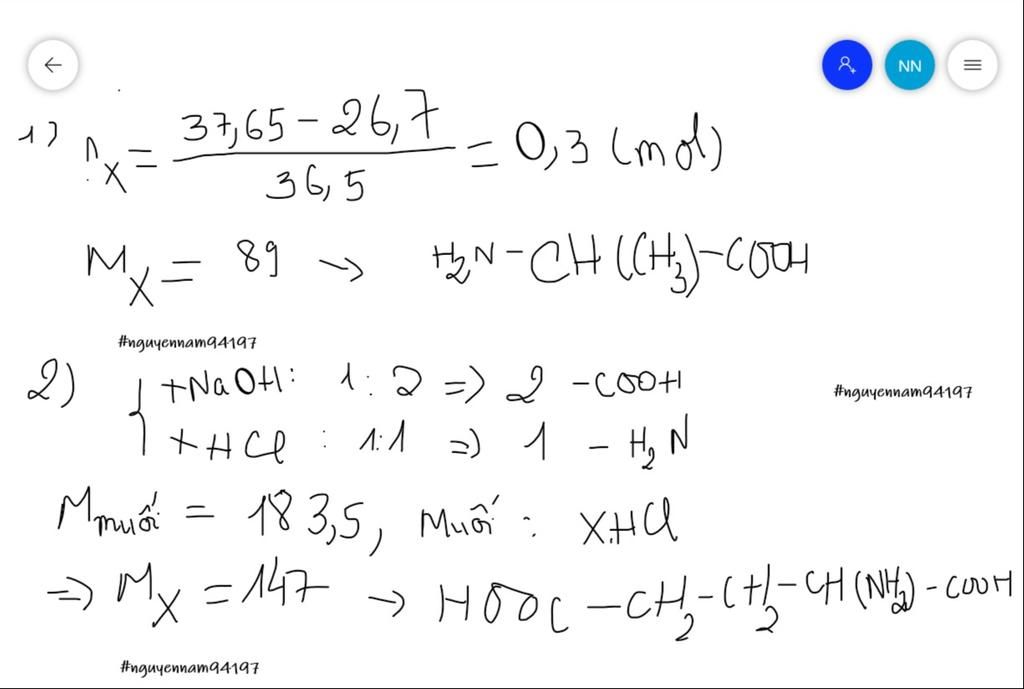 NN
1) n_X = (37,65 - 26,7) / 36,5 = 0,3 (mol)
M_X = 89 → H₂N - CH(CH₃) - COOH
#nguyennam94197
2) { + NaOH : 1 : 2 => 2 - COOH
#nguyennam94197
+ HCl : 1:1 => 1 - H₂N
M_muối = 183,5, Muối : X.HCl
=> M_X = 147 → HOOC - CH₂ - CH₂ - CH(NH₂) - COOH
#nguyennam94197